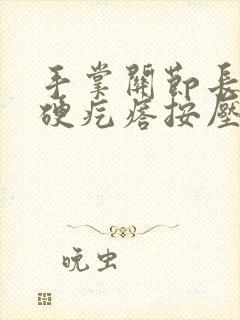 手掌關節長
硬疙瘩按壓
晚虫